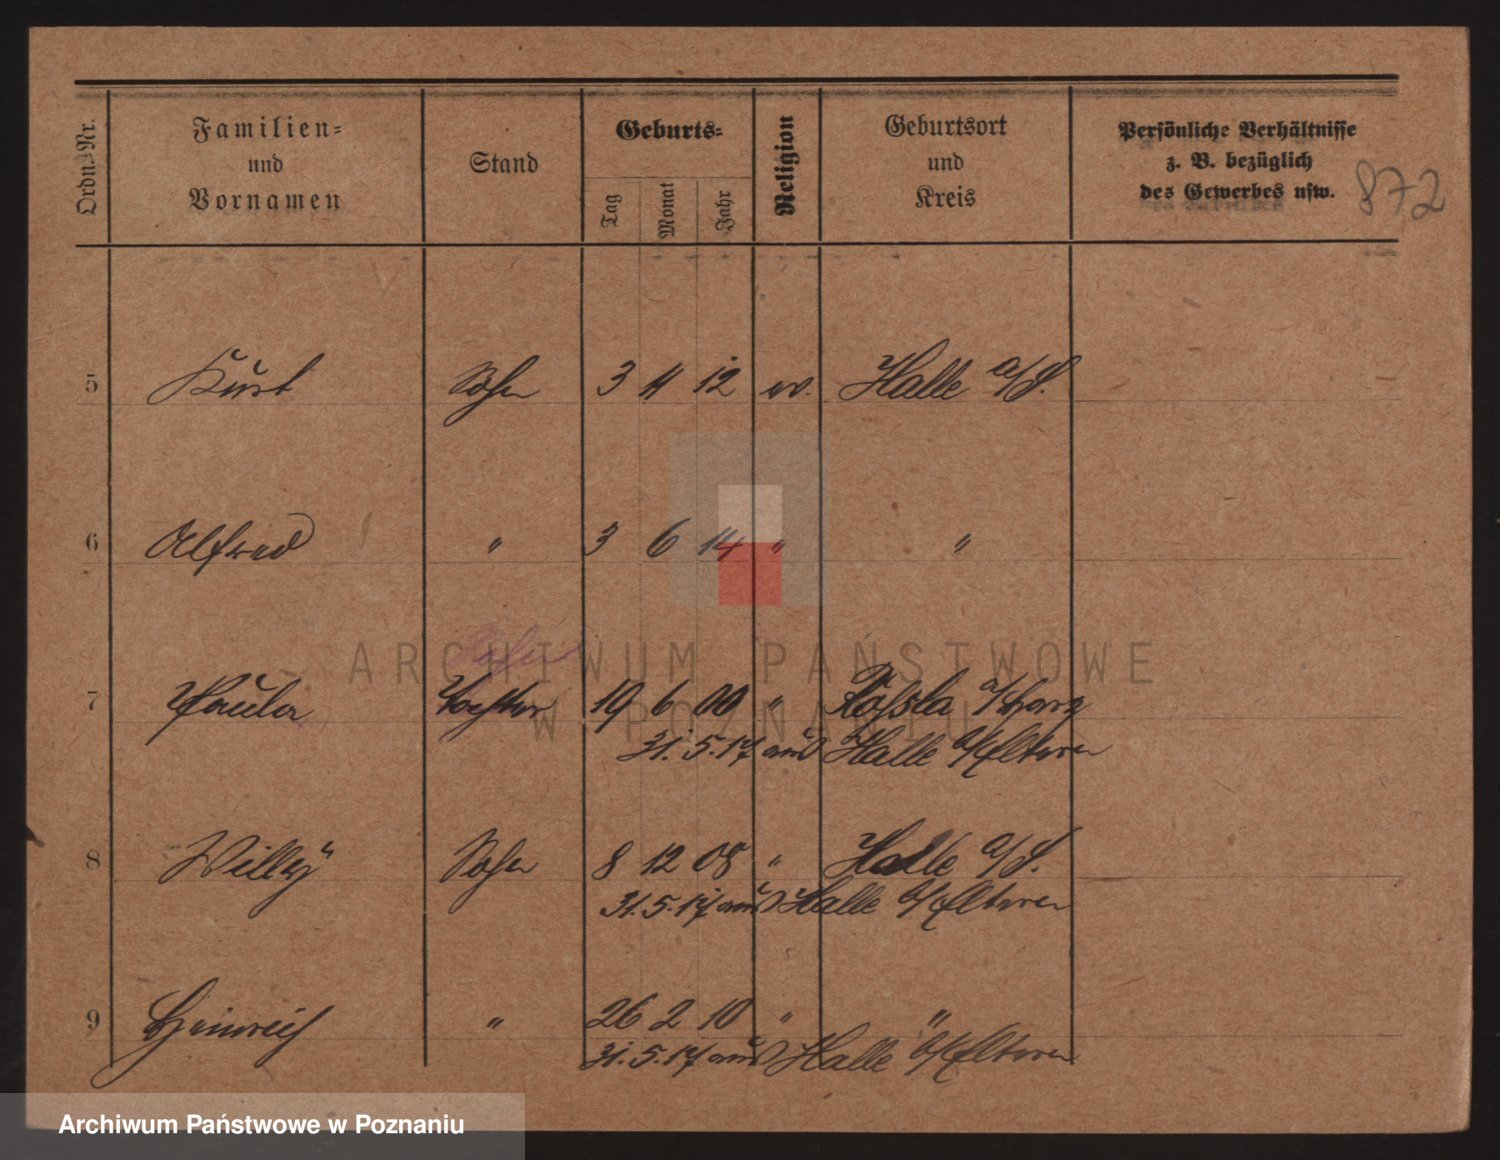 Ordn.-Nr. Familien- und Vornamen Stand Geburts- Tag Monat Jahr Religion Geburtsort und Kreis Persönliche Verhältnisse z. B. bezüglich des Gewerbes usw. 872
5 Kurt Sohn 3 11 12 ev. Halle a/S.
6 Alfred " 3 6 14 " "
7 Paula Tochter 19 6 00 " Rossla a/Harz
31.5.17 aus Halle b/Eltern
8 Willy Sohn 8 12 08 " Halle a/S.
31.5.17 aus Halle b/Eltern
9 Heinrich " 26 2 10 " "
31.5.17 aus Halle b/Eltern
ARCHIWUM PAŃSTWOWE
W POZNANIU
Archiwum Państwowe w Poznaniu